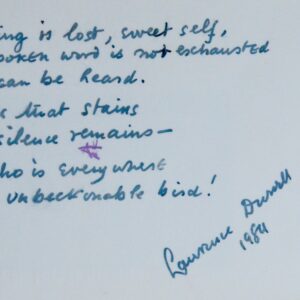 ing is lost, sweet self,
poken word is not exhausted
can be heard.
s that stains
silence remains—
ho is everywhere
unbeckonable bird!
Lawrence Durrell
1984